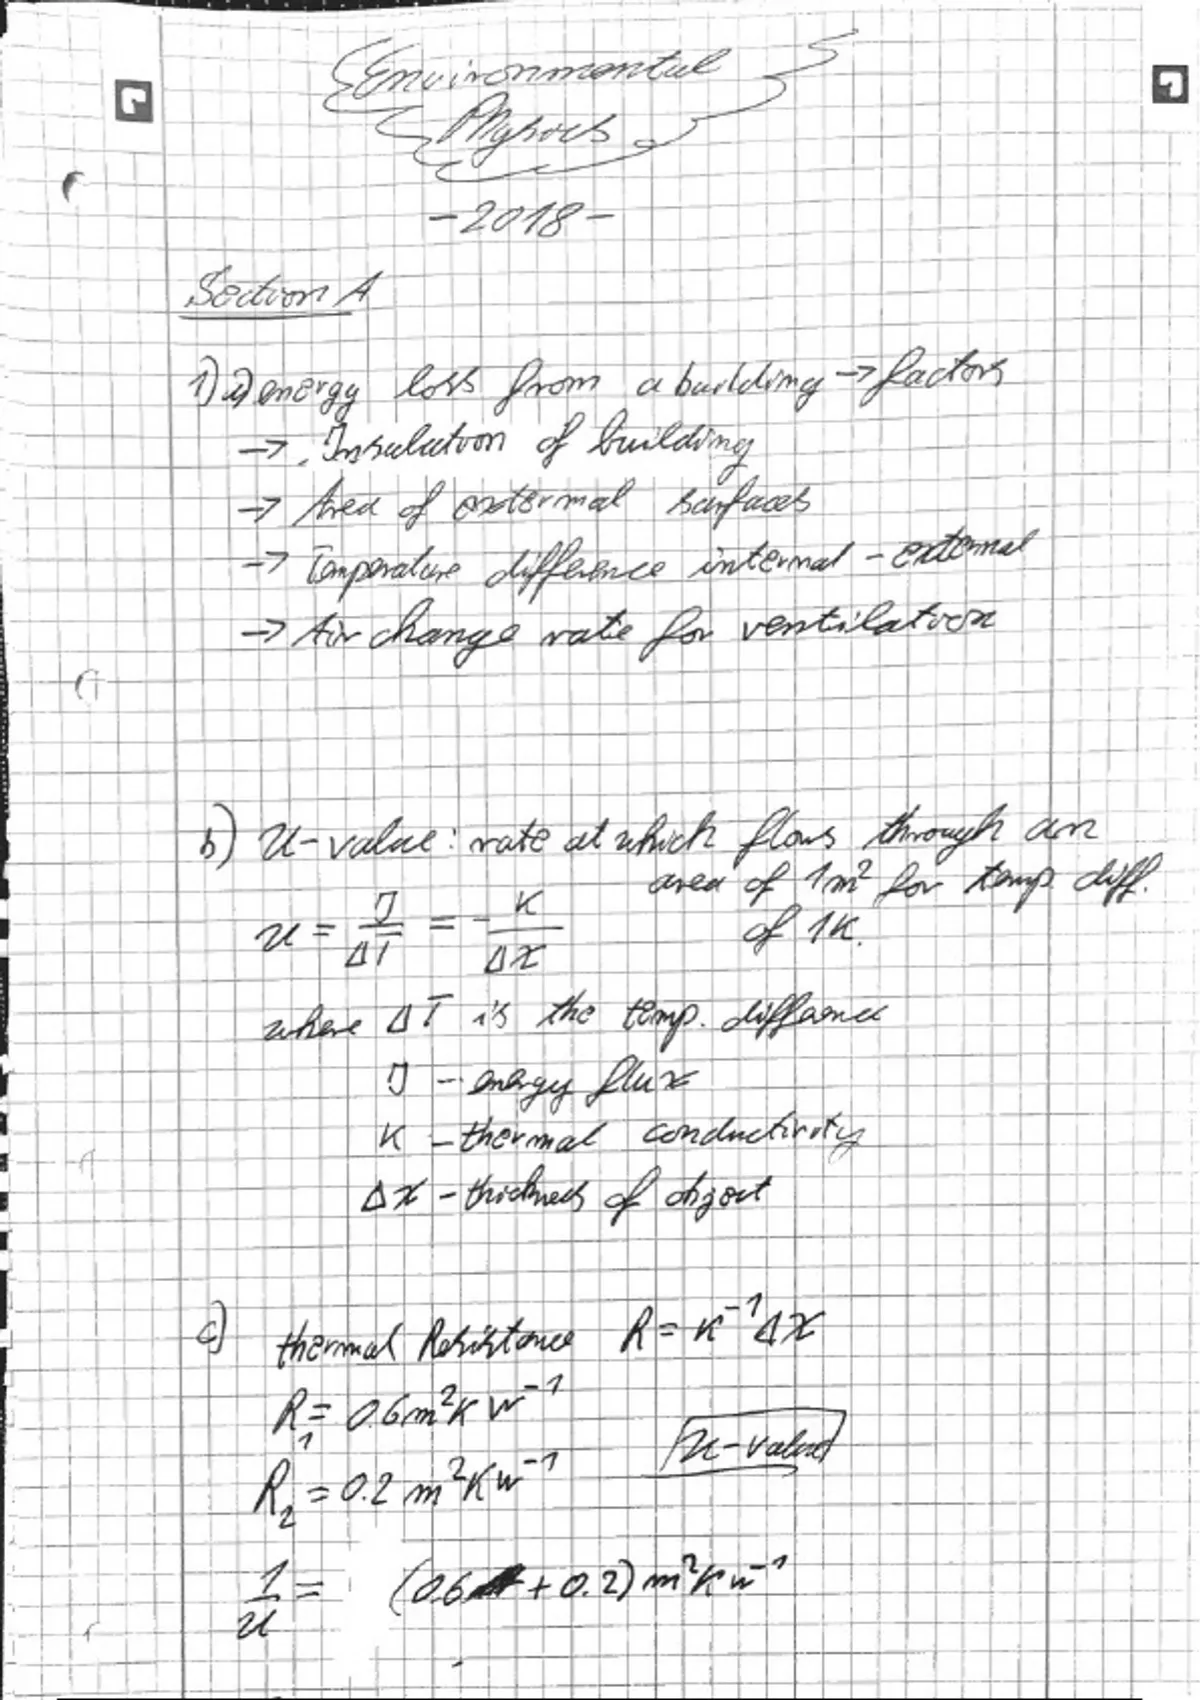 Environmental
Physics
-2018-
Section A
1) a) energy loss from a building → factors
→ Insulation of building
→ Area of external surfaces
→ Temperature difference internal - external
→ Air change rate for ventilation
b) U-value: rate at which flows through an
area of 1m² for temp. diff.
of 1K.
U = J/ΔT = - K/Δx
where ΔT is the temp. difference
J - energy flux
K - thermal conductivity
Δx - thickness of object
c) thermal Resistance R = K⁻¹Δx
R₁ = 0.6 m²K W⁻¹
U-value
R₂ = 0.2 m²K W⁻¹
1/U = (0.6 + 0.2) m²K W⁻¹